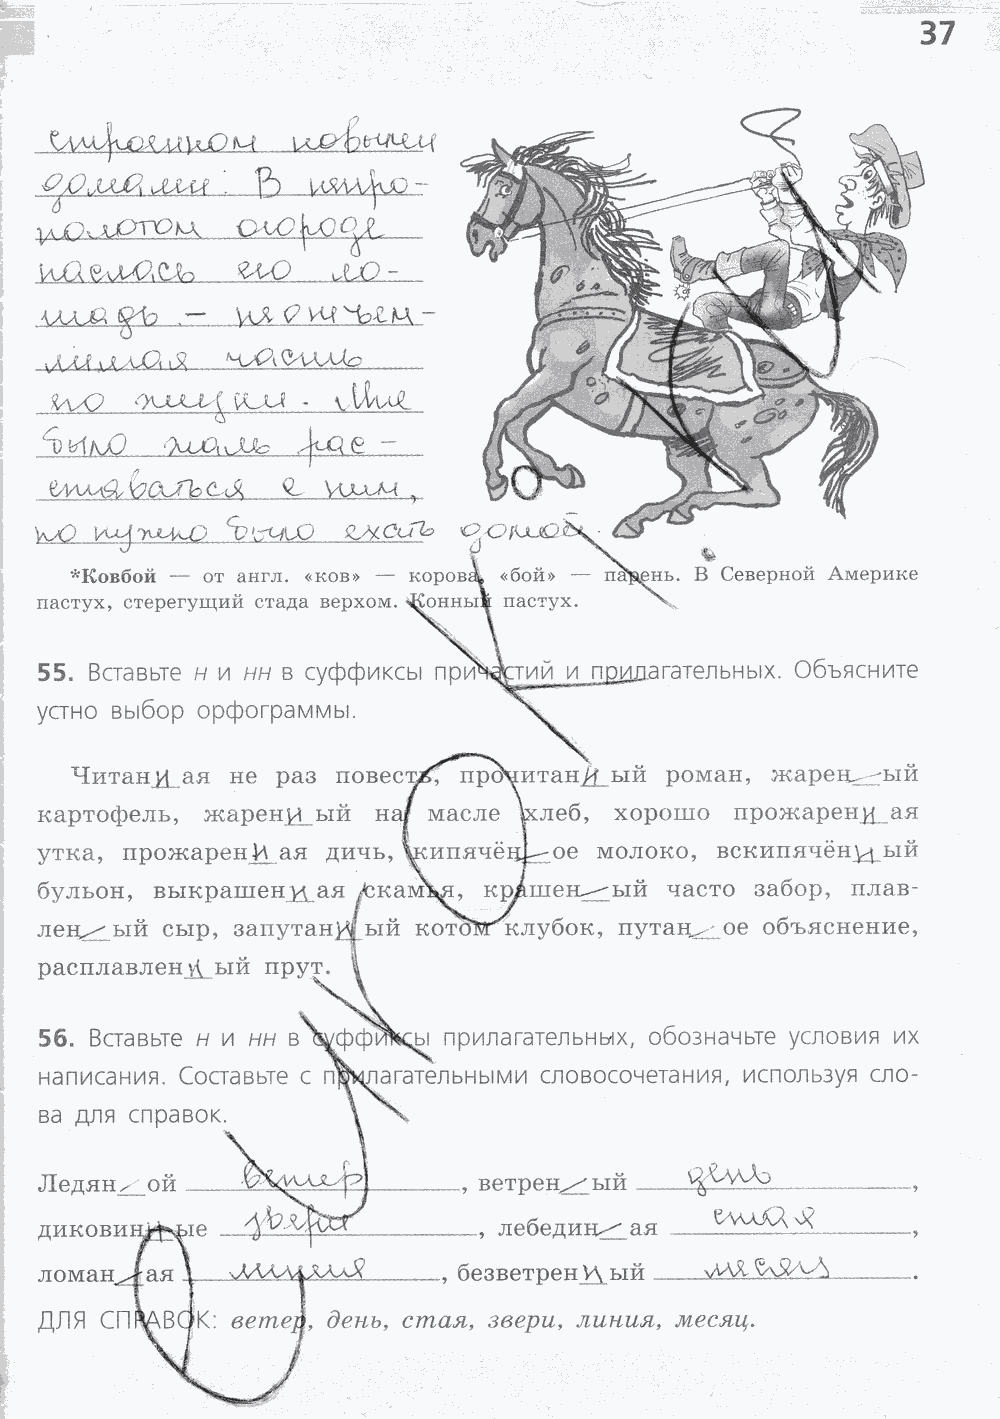 37
строенном новыми
домами. В непро-
полотом огороде
паслась его ло-
шадь — неотъем-
лимая часть
его жизни. Мне
было жаль рас-
ставаться с ним,
но нужно было ехать домой.
*Ковбой — от англ. «ков» — корова, «бой» — парень. В Северной Америке
пастух, стерегущий стада верхом. Конный пастух.
55. Вставьте н и нн в суффиксы причастий и прилагательных. Объясните
устно выбор орфограммы.
Читанная не раз повесть, прочитанный роман, жарен_ый
картофель, жаренный на масле хлеб, хорошо прожаренная
утка, прожаренная дичь, кипячён_ое молоко, вскипячённый
бульон, выкрашенная скамья, крашен_ый часто забор, плав-
лен_ый сыр, запутанный котом клубок, путан_ое объяснение,
расплавленный прут.
56. Вставьте н и нн в суффиксы прилагательных, обозначьте условия их
написания. Составьте с прилагательными словосочетания, используя сло-
ва для справок.
Ледян_ой ветер, ветрен_ый день,
диковинные звери, лебедин_ая стая,
ломан_ая линия, безветренный месяц.
ДЛЯ СПРАВОК: ветер, день, стая, звери, линия, месяц.